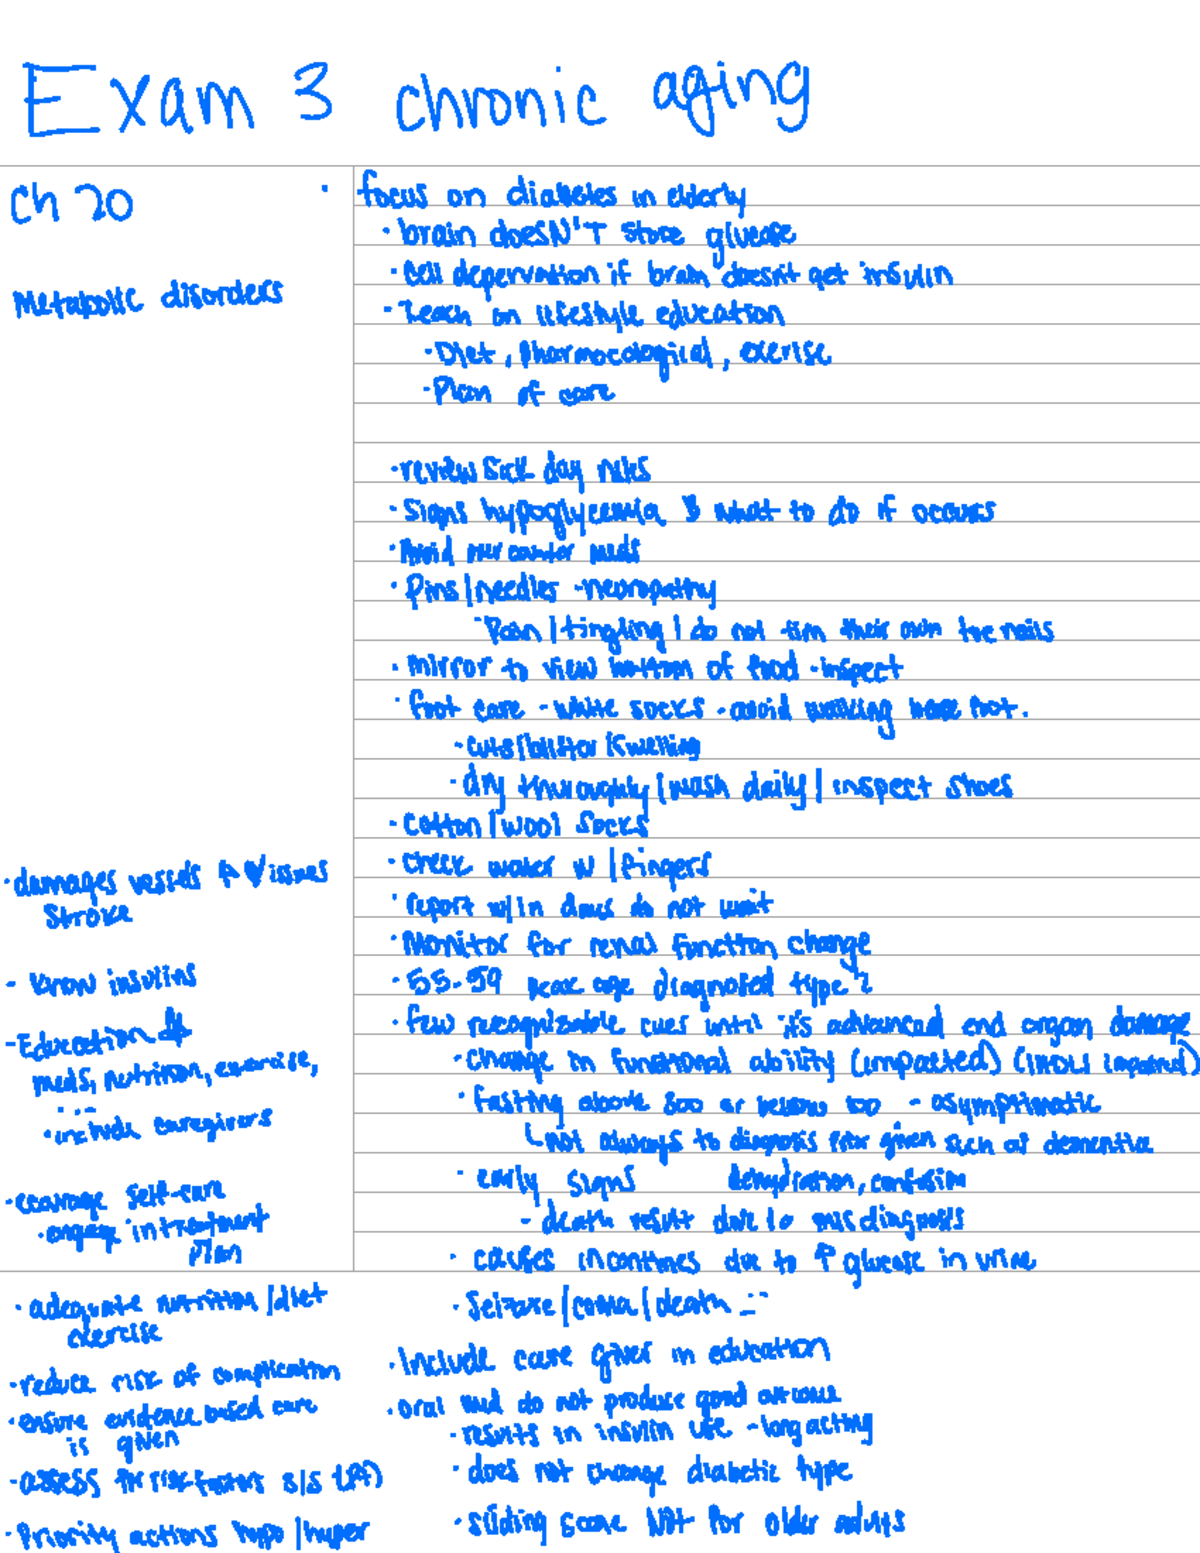 Exam 3 chronic aging
Ch 20
Metabolic disorders
· focus on diabetes in elderly
· brain doesN'T store glucose
· Cell depervation if brain doesn't get insulin
· Teach on lifestyle education
· Diet, pharmocological, exerise
· Plan of care
· review sick day rules
· Signs hypoglycemia & what to do if occurs
· Avoid over counter meds
· Pins/needles - neuropathy
Pain/tingling/do not trim their own toe nails
· mirror to view bottom of food - inspect
· foot care - white socks - avoid walking bare foot.
· cuts/blister/swelling
· dry thuroughly/wash daily/inspect shoes
· cotton/wool socks
· check water w/fingers
· report w/in days do not wait
· Monitor for renal function change
· 55-59 peak age diagnosed type 2
· few recognizable cues until it's advanced end organ damage
· change in functional ability (impacted) (
· fasting above or below - asymptimatic
not always to diagnosis given such as dementia
· early signs dehydration, confusion
- death result due to misdiagnosis
· causes incontines due to ↑ glucose in urine
· damages vessels issues
Stroke
- know insulins
- Education
meds, nutrition, exercise,
· include caregivers
self-care
· engage in treatment
plan
· adequate nutrition/diet
exercise
· reduce risk of complication
· ensure evidence based care
is given
· assess for risk factors s/s
· Priority actions hypo/hyper
· Seizure/coma/death
· Include care giver in education
· oral med do not produce good outcome
· results in insulin use - long acting
· does not change diabetic type
· sliding scale NOT for older adults